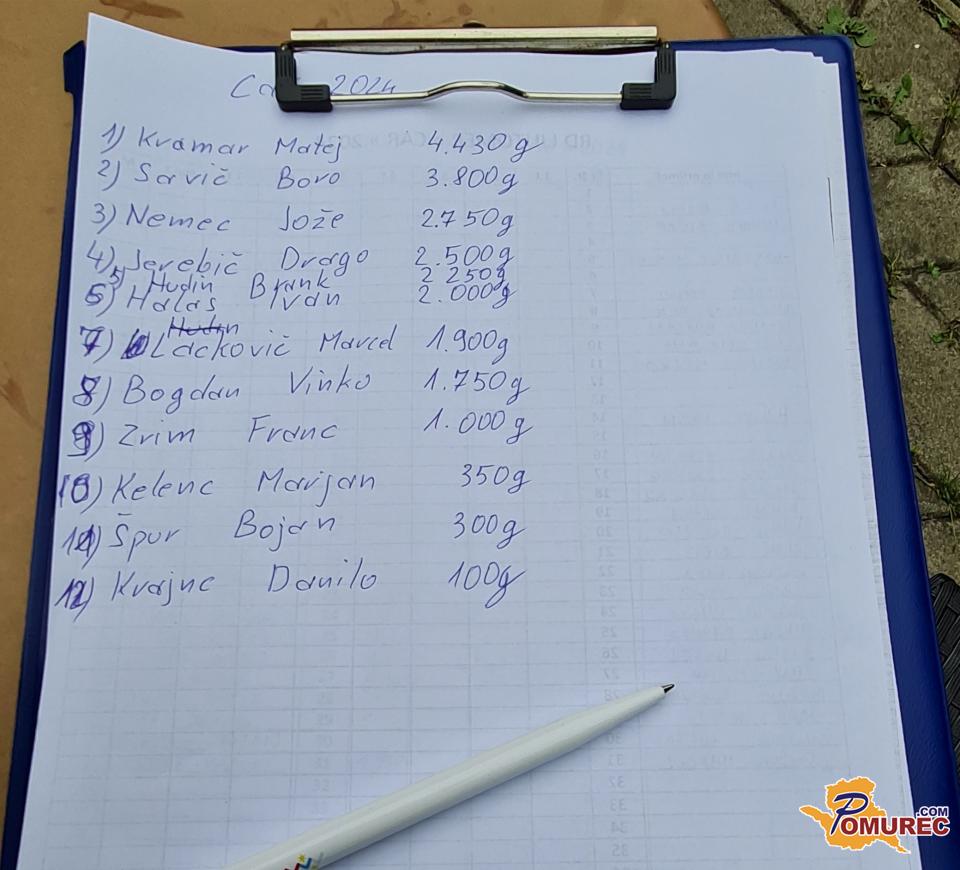 2024
1) Kramar Matej 4.430g
2) Savič Boro 3.800g
3) Nemec Jože 2.750g
4) Jerebič Drago 2.500g
5) Hudin Brank 2 250g
6) Halas Ivan 2.000g
7) Lackovič Marcel 1.900g
8) Bogdan Vinko 1.750g
9) Zrim Franc 1.000g
10) Kelenc Marijan 350g
11) Špur Bojan 300g
12) Krajnc Danilo 100g
POMUREC.COM